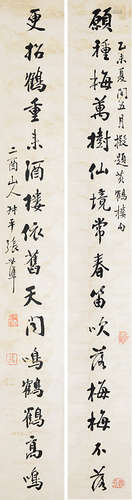 乙未夏閏五月擬題黃鶴樓句
願種梅萬樹仙境常春笛吹落梅梅不落
更招鶴重來酒樓依舊天聞鳴鶴鶴高鳴
二酉山人叔平張世準